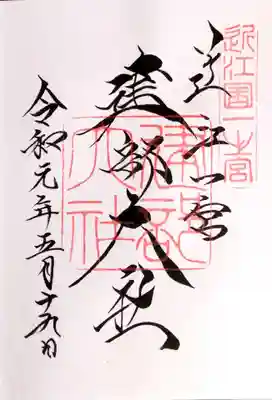 近江国一宮
近江一宮
建部大社
建部大社
令和元年五月十九日